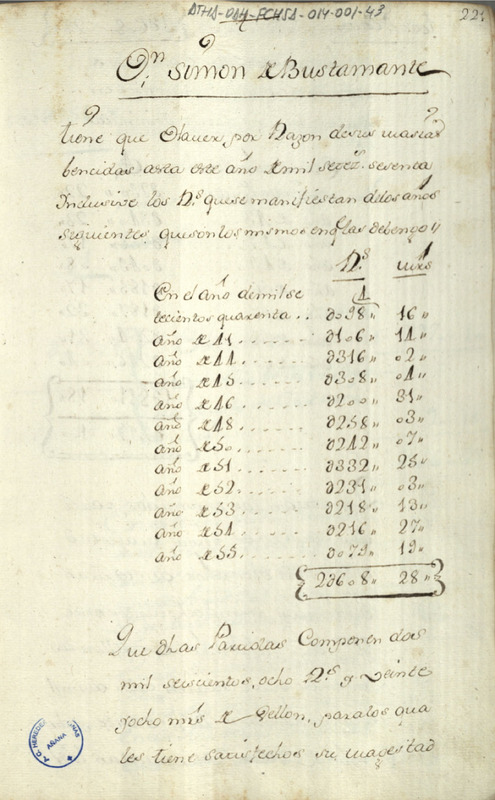 ATHA-DAH-FCHSA-014-001-43
22
Dn. Simon de Bustamante
tiene que Haver, por Razon de sus
bencidas asta este año de mil setez. sesenta
Inclusive los Rs. que se manifiestan de los años
siguientes, que son los mismos en q. las debengo
Rs. mrs
En el año de mil se
tecientos quarenta .. 0098,, 16,,
año de 41 ...... 0106,, 14,,
año de 44 ...... 0316,, 02,,
año de 45 ...... 0308,, 04,,
año de 46 ...... 0200,, 31,,
año de 48 ...... 0258,, 03,,
año de 50 ...... 0242,, 07,,
año de 51 ...... 0332,, 25,,
año de 52 ...... 0231,, 03,,
año de 53 ...... 0218,, 13,,
año de 54 ...... 0216,, 27,,
año de 55 ...... 0079,, 19,,
2d608,, 28,,
Que dhas Partidas Componen dos
mil seiscientos, ocho Rs. y Veinte
y ocho mrs de Vellon, para los qua
les tiene satisfechos su magestad
AÑANA